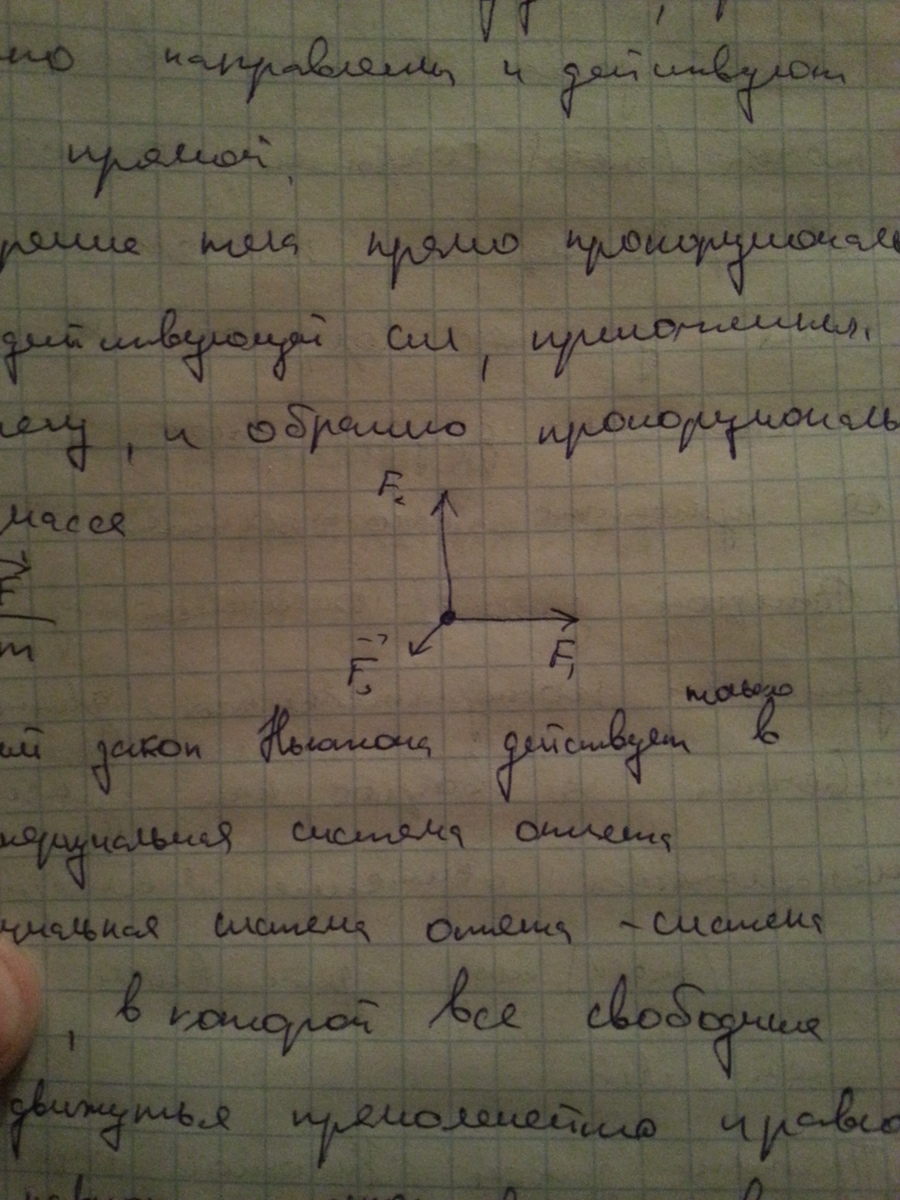 но направлены и действуют
прямой
рение тела прямо пропорциональ
действующей сил, приложенных
телу, и обратно пропорциональ
массе
F₂
F
m
F₃ F₁
только
ий закон Ньютона действует в
нерциальная система отчета
циальная система отчета - система
, в которой все свободные
движутья прямолинейно и равно